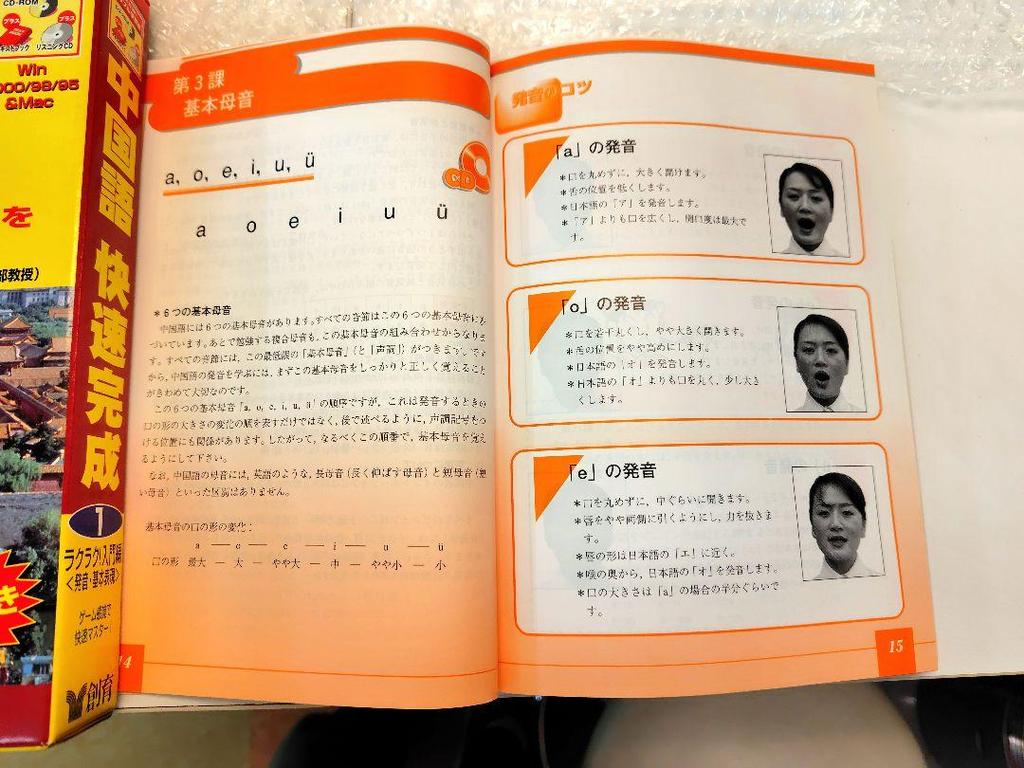 CD-ROM
プラス
プラス
リスニングCD
Win
&Mac
を
部教授)
中国語 快速完成
1
ラクラク入門編
<発音・基本表現>
ゲーム感覚で
快速マスター!
創育
第3課
基本母音
a, o, e, i, u, ü
a o e i u ü
*6つの基本母音
中国語には6つの基本母音があります。すべての音節はこの6つの基本母音に基
づいています。あとで勉強する複合母音も、この基本母音の組み合わせからなりま
す。すべての音節には、この最低限の「基本母音」(と「声調」)がつきます。です
から、中国語の発音を学ぶには、まずこの基本母音をしっかりと正しく覚えること
がきわめて大切なのです。
この6つの基本母音「a, o, e, i, u, ü」の順序ですが、これは発音するときの
口の形の大きさの変化の順を表すだけではなく、後で述べるように、声調記号をつ
ける位置にも関係があります。したがって、なるべくこの順番で、基本母音を覚え
るようにして下さい。
なお、中国語の母音には、英語のような、長母音(長く伸ばす母音)と短母音(短
い母音)といった区別はありません。
基本母音の口の形の変化:
a — o — e — i — u — ü
口の形 最大 — 大 — やや大 — 中 — やや小 — 小
14
発音のコツ
「a」の発音
*口を丸めずに、大きく開けます。
*舌の位置を低くします。
*日本語の「ア」を発音します。
*「ア」よりも口を広くし、開口度は最大で
す。
「o」の発音
*口を若干丸くし、やや大きく開きます。
*舌の位置をやや高めにします。
*日本語の「オ」を発音します。
*日本語の「オ」よりも口を丸く、少し大き
くします。
「e」の発音
*口を丸めずに、中ぐらいに開きます。
*唇をやや両側に引くようにし、力を抜きま
す。
*唇の形は日本語の「エ」に近く。
*喉の奥から、日本語の「オ」を発音します。
*口の大きさは「a」の場合の半分ぐらいで
す。
15